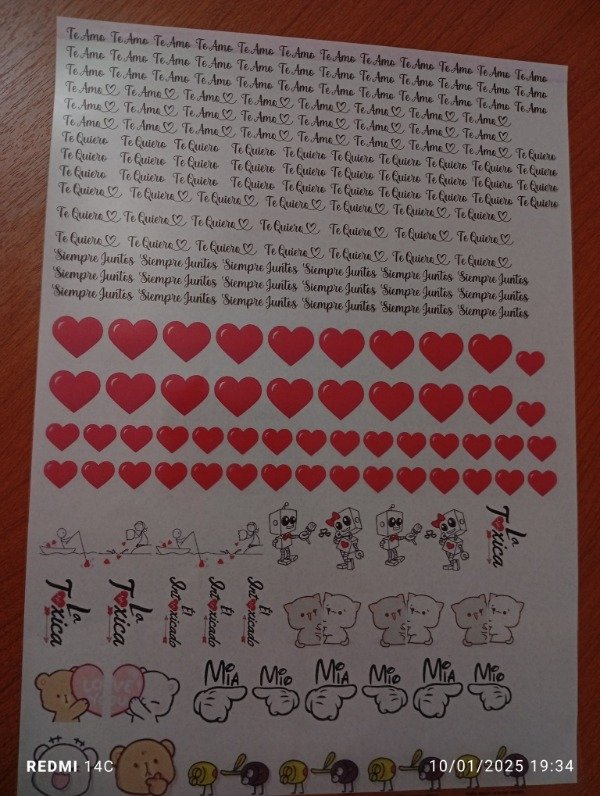 Te Amo Te Amo Te Amo Te Amo Te Amo Te Amo Te Amo Te Amo Te Amo Te Amo Te Amo Te Amo
Te Amo Te Amo Te Amo Te Amo Te Amo Te Amo Te Amo Te Amo Te Amo Te Amo Te Amo Te Amo
Te Amo Te Amo Te Amo Te Amo Te Amo Te Amo Te Amo Te Amo Te Amo Te Amo Te Amo Te Amo
Te Amo♡ Te Amo♡ Te Amo♡ Te Amo♡ Te Amo♡ Te Amo♡ Te Amo♡ Te Amo♡
Te Amo♡ Te Amo♡ Te Amo♡ Te Amo♡ Te Amo♡ Te Amo♡ Te Amo♡ Te Amo♡
Te Amo♡ Te Amo♡ Te Amo♡ Te Amo♡ Te Amo♡ Te Amo♡ Te Amo♡ Te Amo♡
Te Quiero Te Quiero Te Quiero Te Quiero Te Quiero Te Quiero Te Quiero Te Quiero Te Quiero Te Quiero
Te Quiero Te Quiero Te Quiero Te Quiero Te Quiero Te Quiero Te Quiero Te Quiero Te Quiero Te Quiero
Te Quiero Te Quiero Te Quiero Te Quiero Te Quiero Te Quiero Te Quiero Te Quiero Te Quiero Te Quiero
Te Quiero♡ Te Quiero♡ Te Quiero♡ Te Quiero♡ Te Quiero♡ Te Quiero♡ Te Quiero♡
Te Quiero♡ Te Quiero♡ Te Quiero♡ Te Quiero♡ Te Quiero♡ Te Quiero♡ Te Quiero♡
Te Quiero♡ Te Quiero♡ Te Quiero♡ Te Quiero♡ Te Quiero♡ Te Quiero♡ Te Quiero♡
Siempre Juntos Siempre Juntos Siempre Juntos Siempre Juntos Siempre Juntos Siempre Juntos
Siempre Juntos Siempre Juntos Siempre Juntos Siempre Juntos Siempre Juntos Siempre Juntos
Siempre Juntos Siempre Juntos Siempre Juntos Siempre Juntos Siempre Juntos Siempre Juntos
La
Toxica
La
Toxica
La
Toxica
El
Intoxicado
El
Intoxicado
El
Intoxicado
I LOVE
YOU
MiA Mio MiA Mio MiA Mio
REDMI 14C 10/01/2025 19:34